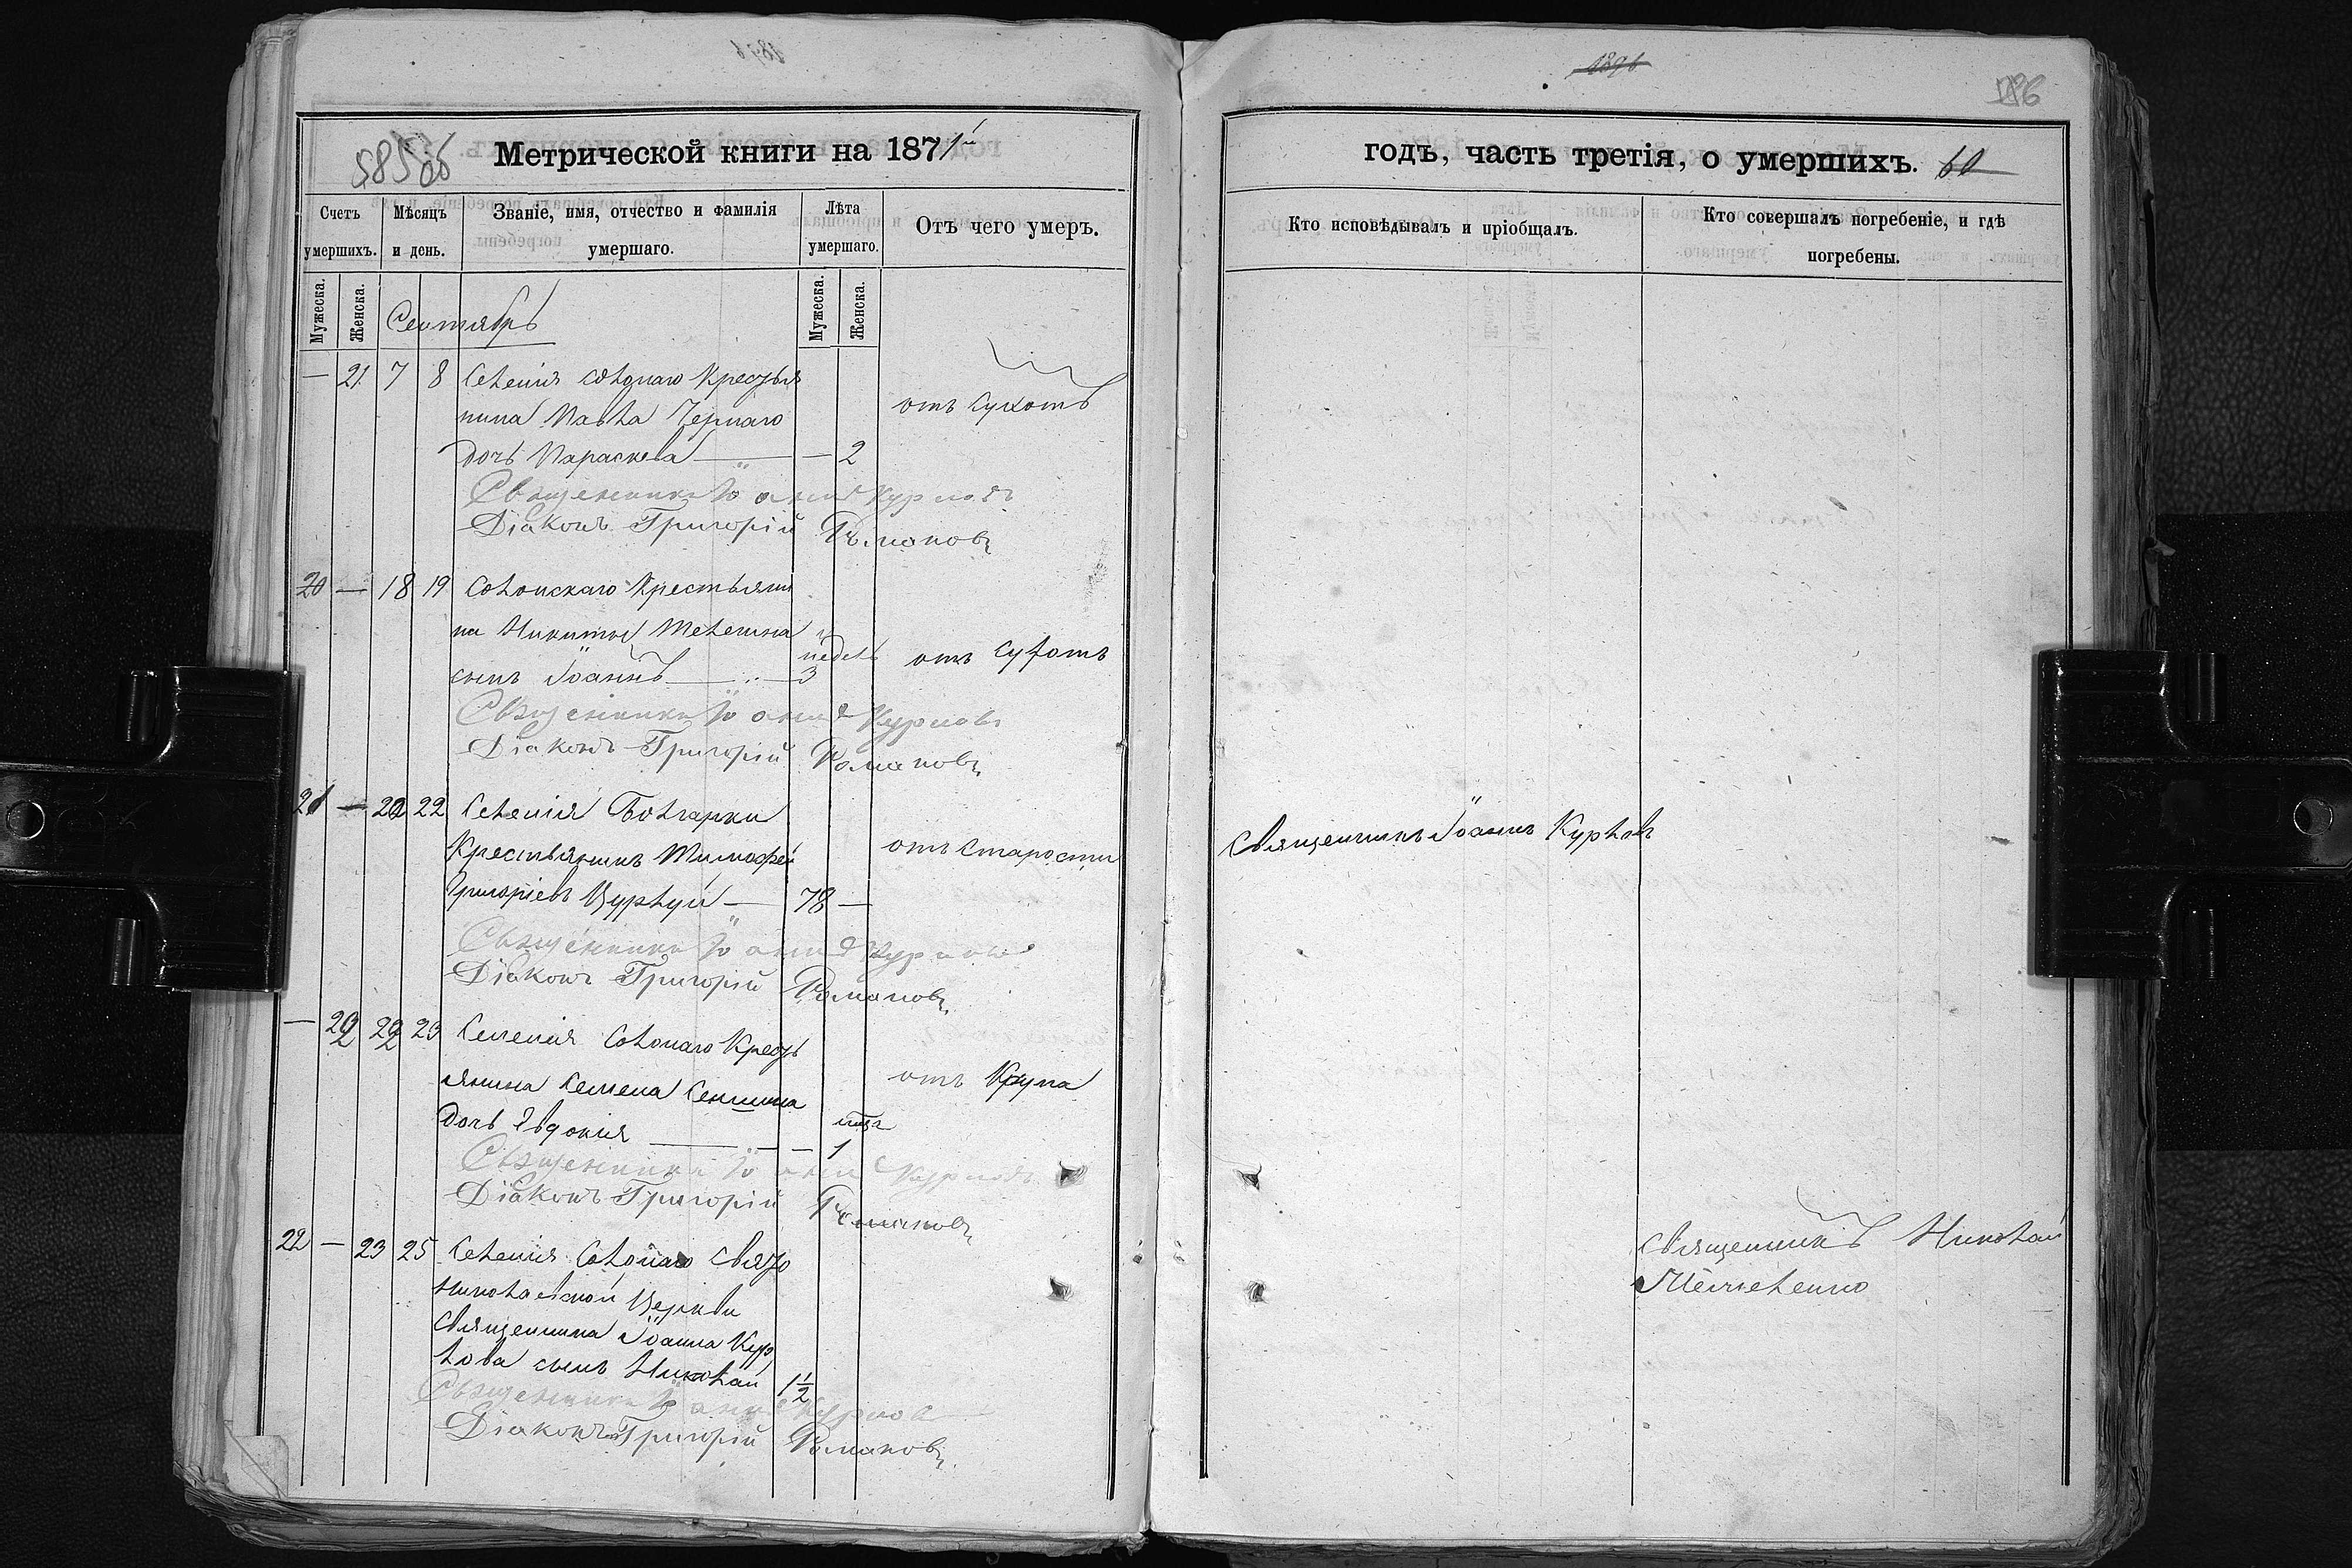 1876
58566
Метрической книги на 1871
Счетъ умершихъ.
Мѣсяцъ и день.
Званіе, имя, отчество и фамилія умершаго.
Лѣта умершаго.
Отъ чего умеръ.
Мужеска.
Женска.
Мужеска.
Женска.
Сентябрь
— 21 7 8 Селенія
нина Павла Чернаго
отъ сухотъ
дочь Параскева — 2
Священникъ Іоаннъ Курловъ
Діаконъ Григорій Романовъ
20 — 18 19 Крестьяни
на Никиты
недель
отъ сухотъ
сынъ Іоаннъ — 3
Священникъ Іоаннъ Курловъ
Діаконъ Григорій Романовъ
21 — 22 Селенія Болгарки
Крестьянинъ Тимофей
отъ старости
Григоріевъ — 78 —
Священникъ Іоаннъ Курловъ
Діаконъ Григорій Романовъ
— 22 22 23 Селенія
янина Семена
отъ Крупа
дочь Евдокия — 1
Священникъ Іоаннъ Курловъ
Діаконъ Григорій Романовъ
22 — 23 25 Селенія
Николаевской Церкви
Священника Іоанна Кур
лова сынъ Николай 1½
Священникъ Іоаннъ Курлов
Діаконъ Григорій Романовъ
1876
186
годъ, часть третія, о умершихъ. 60
Кто исповѣдывалъ и пріобщалъ.
Кто совершалъ погребеніе, и гдѣ погребены.
Священникъ Іоаннъ Курловъ
Священникъ Николай